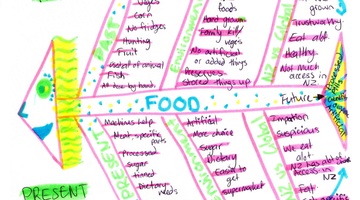 Veges
Corn
No fridges
Hunting
Fruit
Fish
All done by hand
PAST
foods
Hard grown
Family kill/
veges
No artificial
or added things
Preserves
stored things up
Environment
grown
Trustworthy
Eat alot
Healthy
Not much
access in
NZ
NZ vs China!
FOOD
Future
Machines help
Meat, specific
parts
Processed
Sugar
tinned
Dietary
needs
PRESENT
Artificial
More choice
Sugar
Dietary
Easier to
get
supermarket
Environment
Suspicious
We eat
alot
NZ has alot of
access in
Fat
NZ vs China!
PRESENT